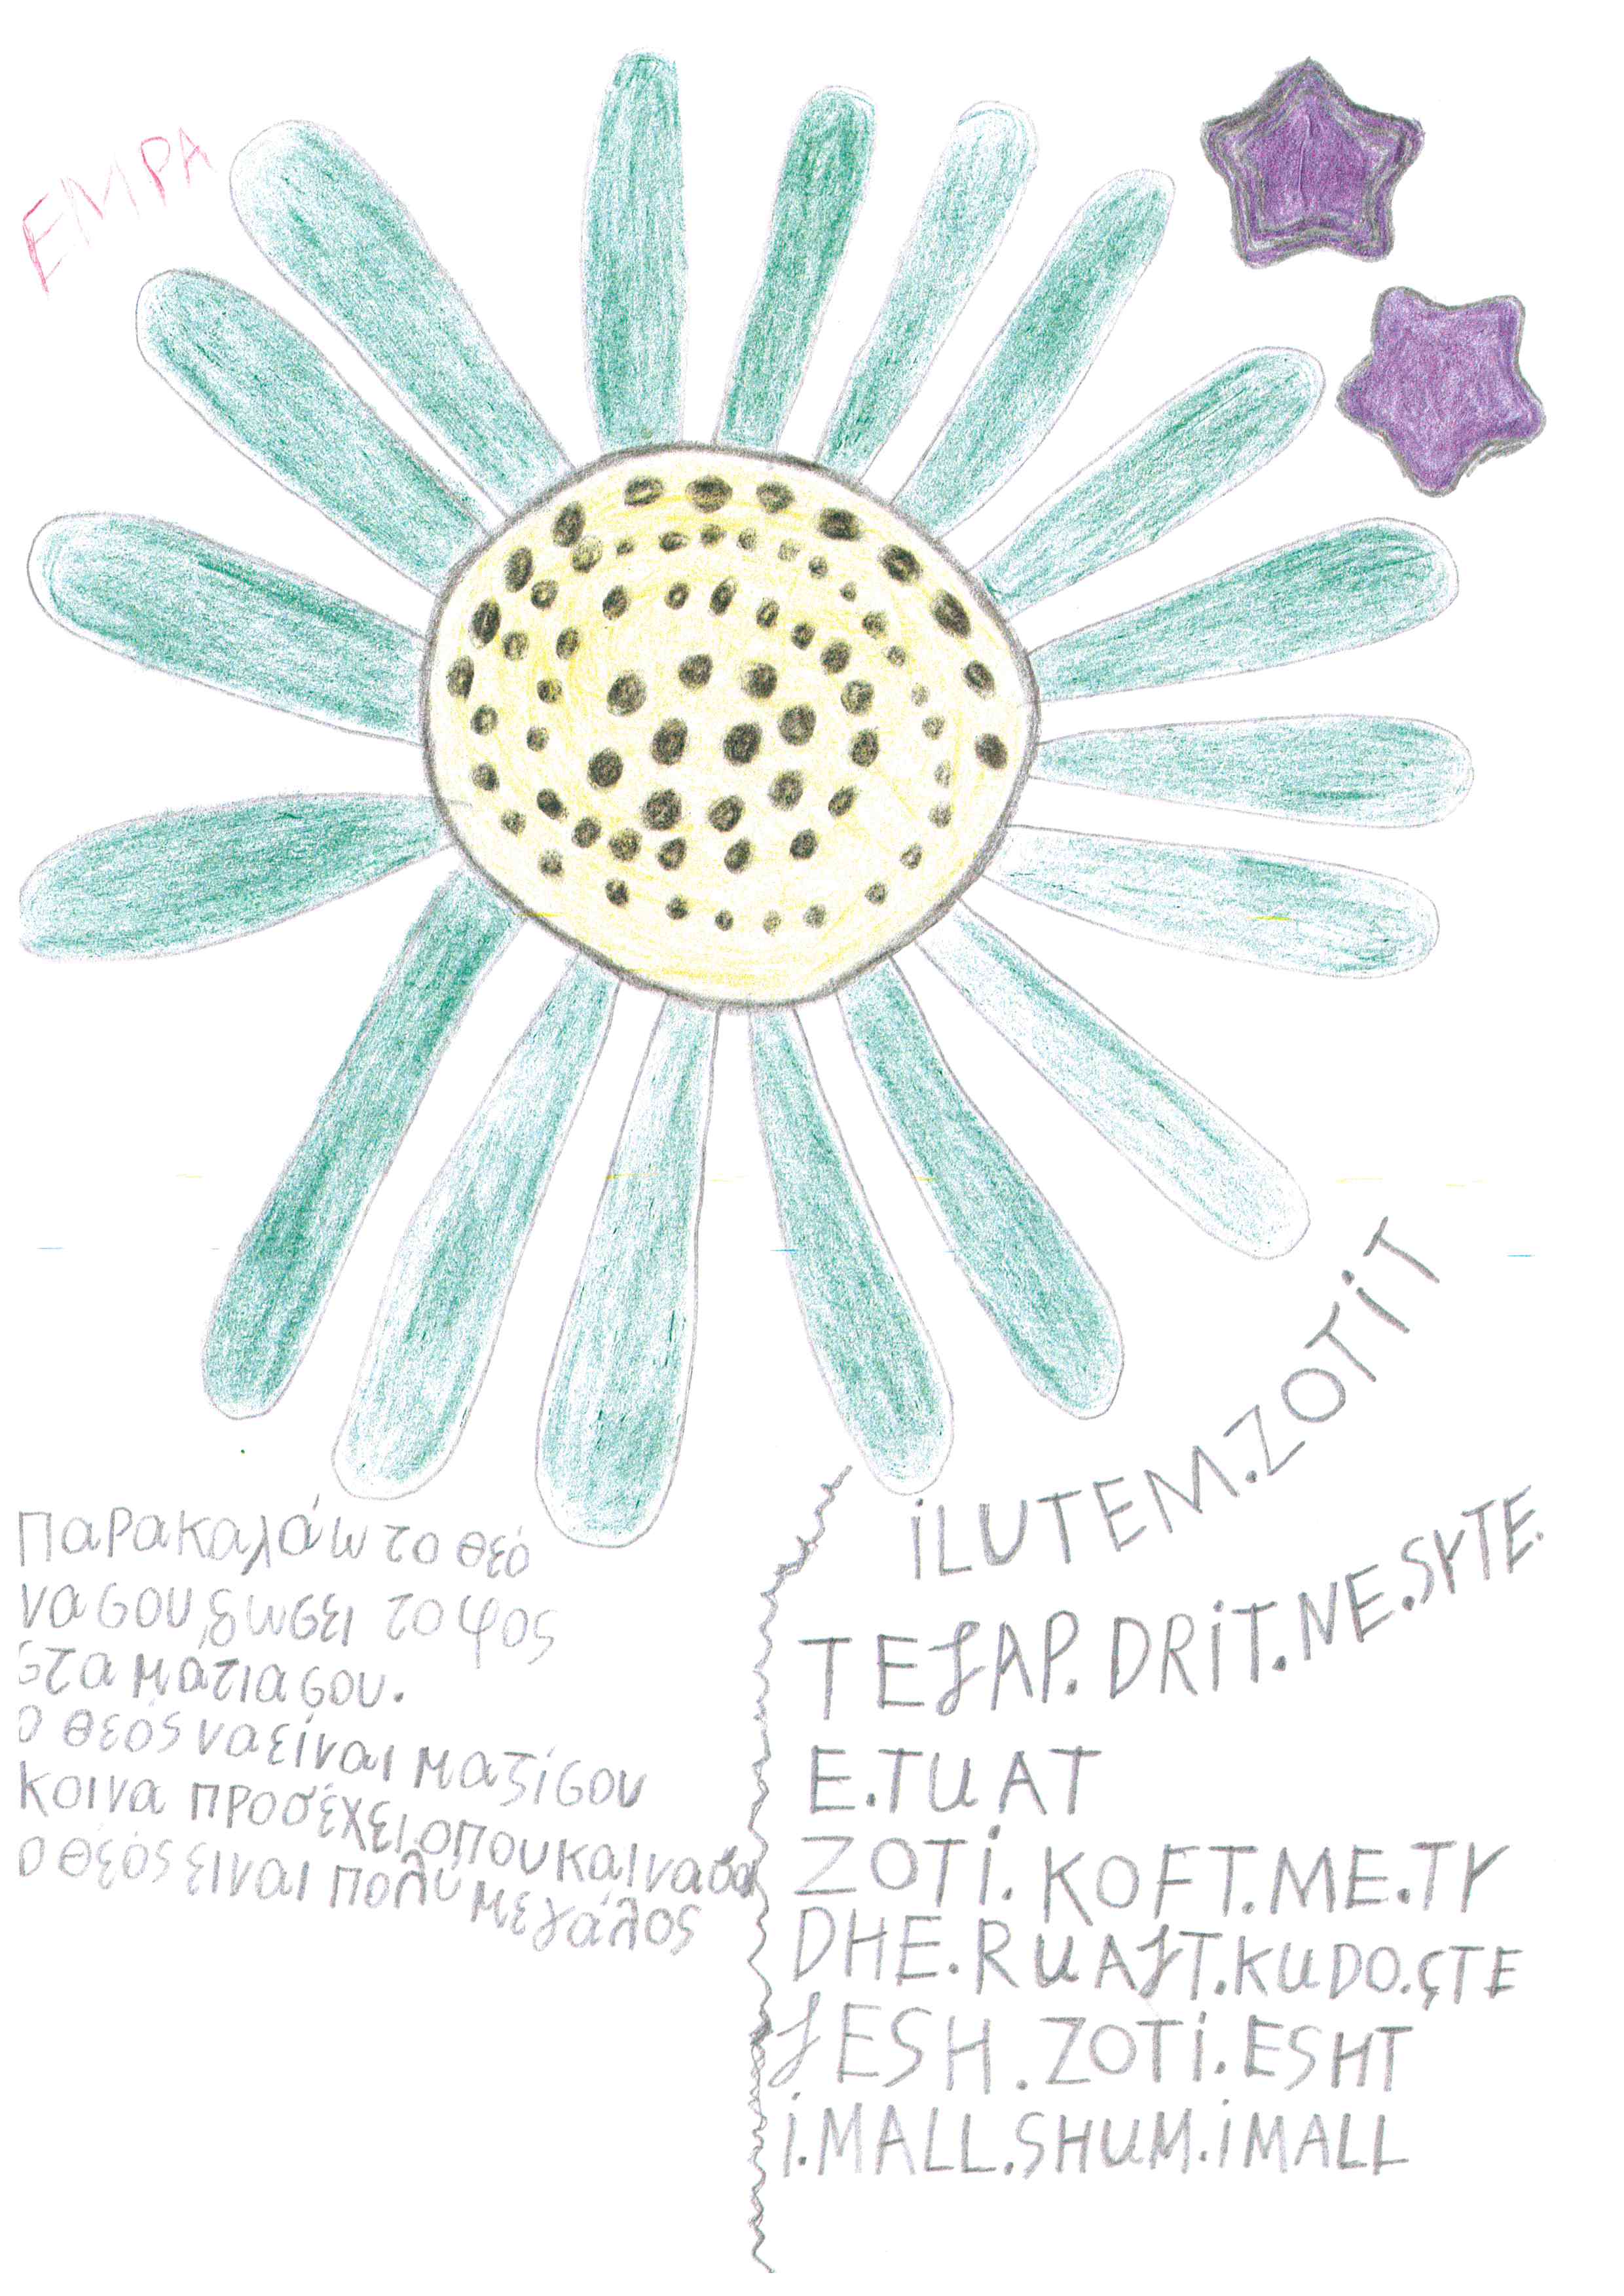 ΕΜΡΑ
παρακαλάω το θεό
να σου δώσει το φος
στα μάτια σου.
ο θεός να είναι μαζί σου
κοινα προσέχει όπου και να
ο θεός είναι πολύ μεγάλος
iLUTEM.ZOTiT
TEJAP.DRiT.NE.SYTE.
E.TUAT
ZOTi.KOFT.ME.TY
DHE.RUAJT.KUDO.ÇTE
JESH.ZOTi.ESHT
i.MALL.SHUM.iMALL